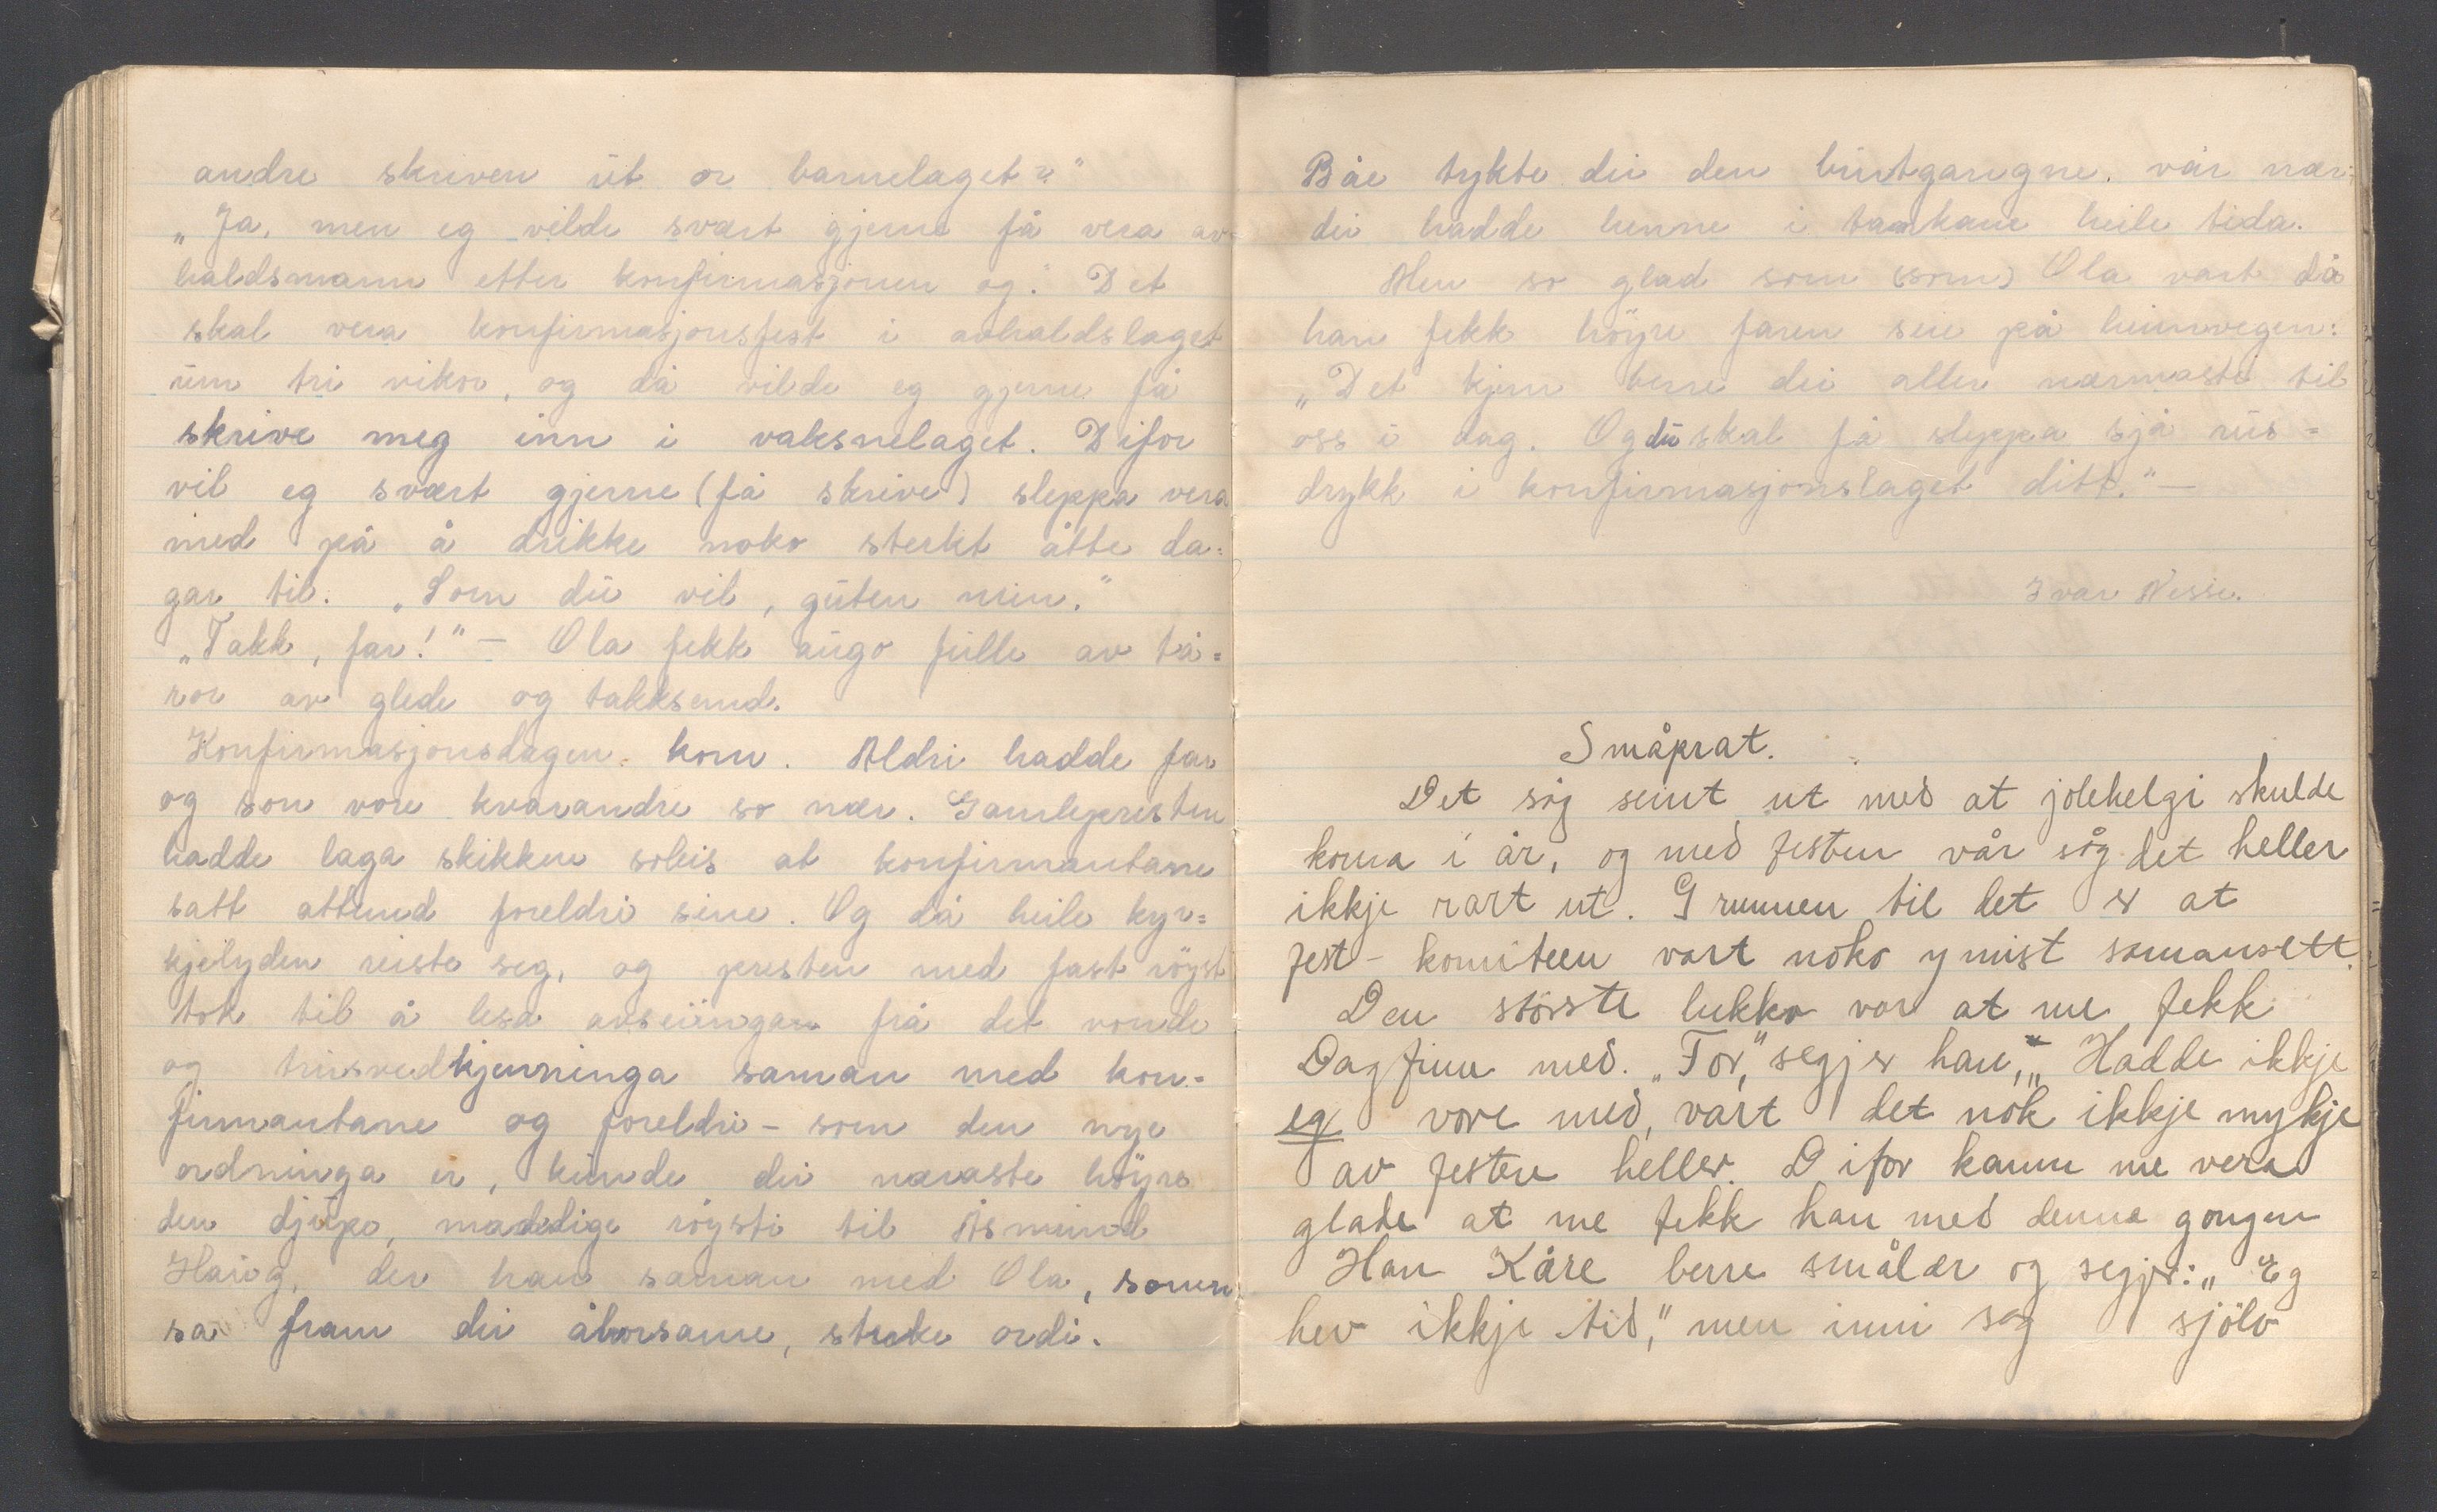 andre skriven ut or barnelaget?"
„Ja, men eg vilde svært gjerne få vera av-
haldsmann etter konfirmasjonen og." Det
skal vera konfirmasjonsfest i avhaldslaget
um tri vikor, og då vilde eg gjerne få
skrive meg inn i vaksnelaget. Difor
vil eg svært gjerne (få skrive) sleppa vera
med på å drikke noko sterkt åtte da=
gar til. „Som du vil, guten min."
„Takk, far!" — Ola fekk augo fulle av tå=
ror av glede og takksemd.
Konfirmasjonsdagen kom. Aldri hadde far
og son vore kvarandre so nær. Gamlepresten
hadde laga skikken soleis at konfirmantane
satt attmed foreldri sine. Og då heile kyr=
kjelyden reiste seg, og presten med fast røyst
tok til å lesa avseiingar frå det vonde
og truvedkjenninga saman med kon=
firmantane og foreldri - som den nye
ordninga er, kunde dei næraste høyre
den djupe, mandige røysti til Åsmund
Haug, der han saman med Ola, sonen
sa fram dei ålvorsame, sterke ordi.
Båe tykte dei den burtgangne var nær:
dei hadde henne i tankane heile tida.
Men so glad som (som) Ola vart då
han fekk høyre faren seie på heimvegen:
„Det kjem berre dei aller nærmaste til
oss i dag. Og du skal få sleppa sjå rus=
drykk i konfirmasjonslaget ditt." —
Ivar Nesse.
Småprat.
Det såg seint ut med at jolehelgi skulde
koma i år, og med festen vår såg det heller
ikkje rart ut. Grunnen til det er at
fest-komiteen vart noko ymist samansett.
Den største lukka var at me fekk
Dagfinn med. „For," segjer han, „Hadde ikkje
eg vore med, vart det nok ikkje mykje
av festen heller. Difor kann me vera
glade at me fekk han med denne gongen
Han Kåre berre smålær og segjer: „Eg
hev ikkje tid," men inni seg sjølv